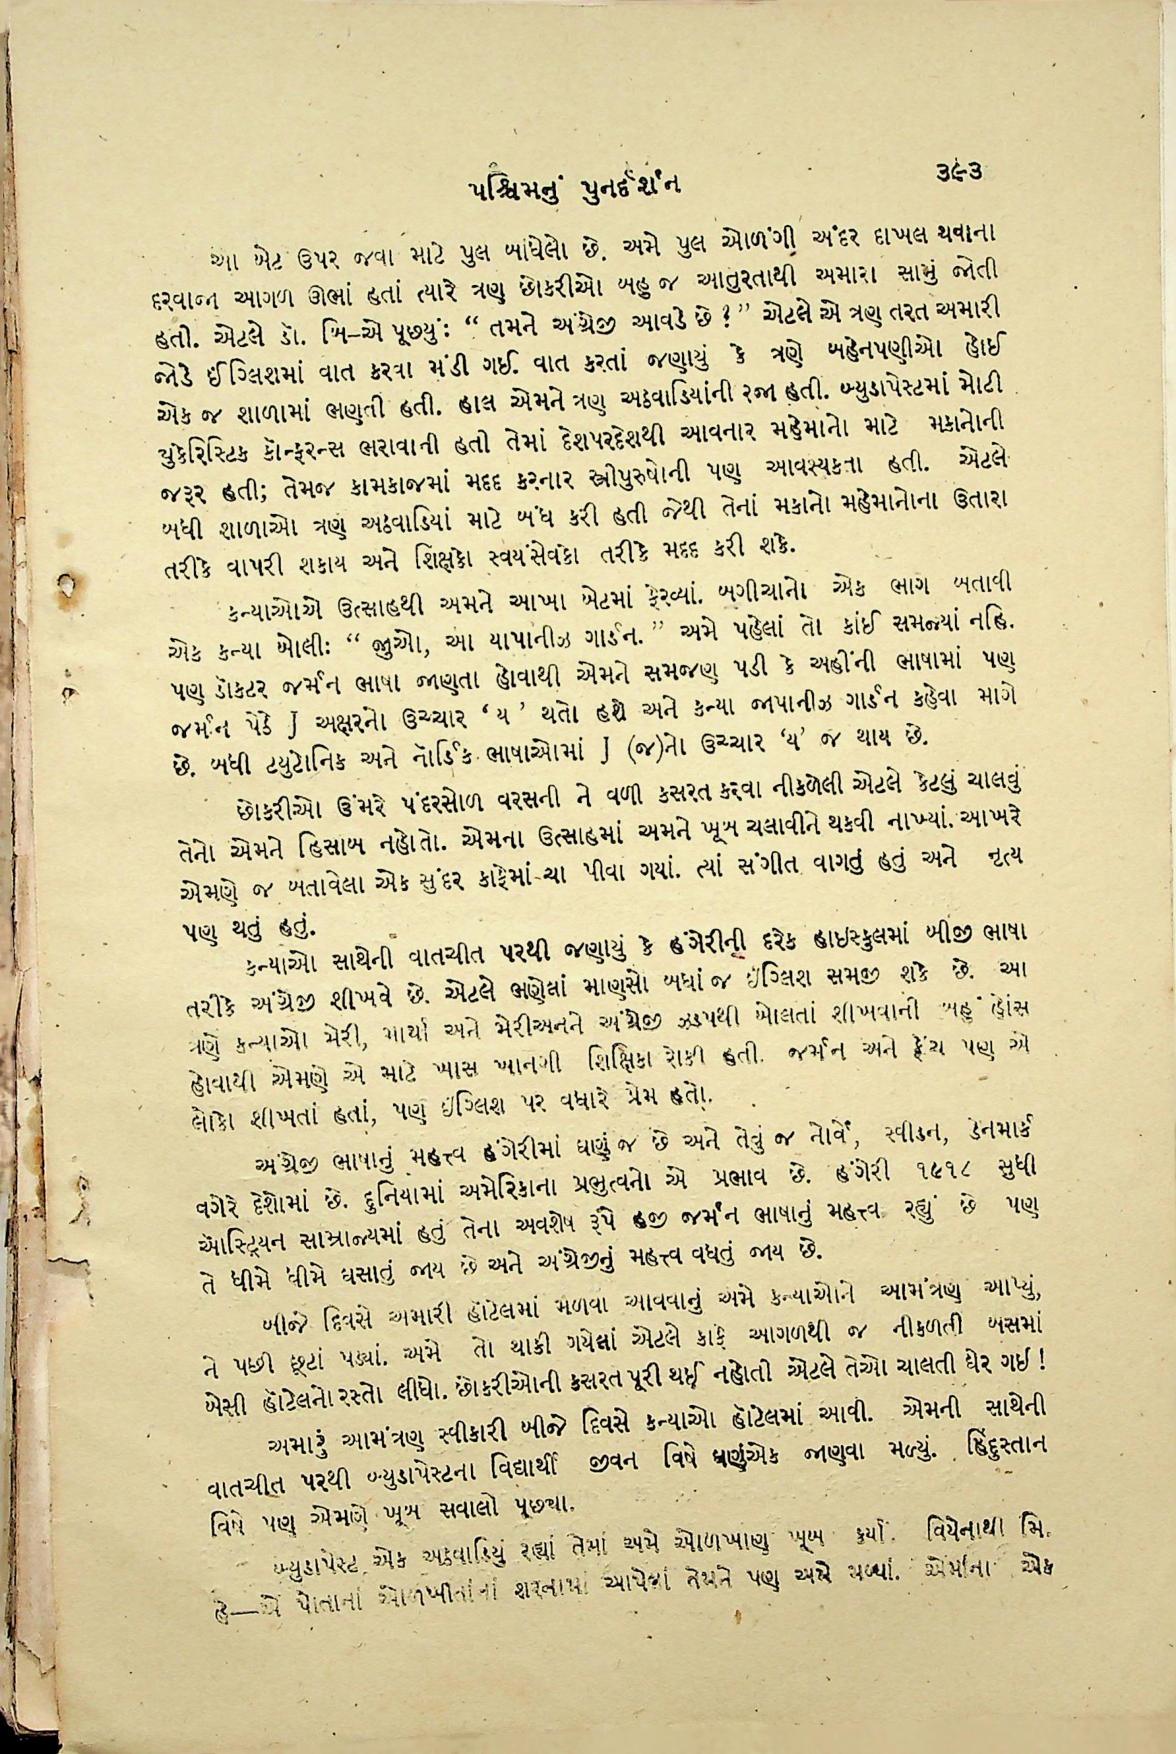 પશ્ચિમનું પુનર્દર્શન
૩૯૩
આ બેટ ઉપર જવા માટે પુલ બાંધેલો છે. અમે પુલ ઓળંગી અંદર દાખલ થવાના
દરવાજા આગળ ઊભાં હતાં ત્યારે ત્રણ છોકરીઓ બહુ જ આતુરતાથી અમારા સામું જોતી
હતી. એટલે ડૉ. મિ—એ પૂછ્યું: “ તમને અંગ્રેજી આવડે છે ? ” એટલે એ ત્રણ તરત અમારી
જોડે ઈંગ્લિશમાં વાત કરવા મંડી ગઈ. વાત કરતાં જણાયું કે ત્રણે બહેનપણીઓ હોઈ
એક જ શાળામાં ભણતી હતી. હાલ એમને ત્રણ અઠવાડિયાંની રજા હતી. બ્યુડાપેસ્ટમાં મોટી
યુકેરિસ્ટિક કૉન્ફરન્સ ભરાવાની હતી તેમાં દેશપરદેશથી આવનાર મહેમાનો માટે મકાનોની
જરૂર હતી; તેમજ કામકાજમાં મદદ કરનાર સ્ત્રીપુરુષોની પણ આવશ્યકતા હતી. એટલે
બધી શાળાઓ ત્રણ અઠવાડિયાં માટે બંધ કરી હતી જેથી તેનાં મકાનો મહેમાનોના ઉતારા
તરીકે વાપરી શકાય અને શિક્ષકો સ્વયંસેવકો તરીકે મદદ કરી શકે.
કન્યાઓએ ઉત્સાહથી અમને આખા બેટમાં ફેરવ્યાં. બગીચાનો એક ભાગ બતાવી
એક કન્યા બોલી: “ જુઓ, આ યાપાનીઝ ગાર્ડન. ” અમે પહેલાં તો કાંઈ સમજ્યાં નહિ.
પણ ડૉકટર જર્મન ભાષા જાણતા હોવાથી એમને સમજણ પડી કે અહીંની ભાષામાં પણ
જર્મન પેઠે J અક્ષરનો ઉચ્ચાર ‘ ય ’ થતો હશે અને કન્યા જાપાનીઝ ગાર્ડન કહેવા માગે
છે. બધી ટયુટોનિક અને નૉર્ડિક ભાષાઓમાં J (જ)નો ઉચ્ચાર ‘ય’ જ થાય છે.
છોકરીઓ ઉંમરે પંદરસોળ વરસની ને વળી કસરત કરવા નીકળેલી એટલે કેટલું ચાલવું
તેનો એમને હિસાબ નહોતો. એમના ઉત્સાહમાં અમને ખૂબ ચલાવીને થકવી નાખ્યાં. આખરે
એમણે જ બતાવેલા એક સુંદર કાફેમાં ચા પીવા ગયાં. ત્યાં સંગીત વાગતું હતું અને નૃત્ય
પણ થતું હતું.
કન્યાઓ સાથેની વાતચીત પરથી જણાયું કે હંગેરીની દરેક હાઇસ્કુલમાં બીજી ભાષા
તરીકે અંગ્રેજી શીખવે છે. એટલે ભણેલાં માણસો બધાં જ ઇંગ્લિશ સમજી શકે છે. આ
ત્રણે કન્યાઓ મેરી, માર્થા અને મેરીઅનને અંગ્રેજી ઝડપથી બોલતાં શીખવાની બહુ હોંસ
હોવાથી એમણે એ માટે ખાસ ખાનગી શિક્ષિકા રોકી હતી. જર્મન અને ફ્રેંચ પણ એ
લોકો શીખતાં હતાં, પણ ઇંગ્લિશ પર વધારે પ્રેમ હતો.
અંગ્રેજી ભાષાનું મહત્ત્વ હંગેરીમાં ઘણું જ છે અને તેવું જ નોર્વે, સ્વીડન, ડેનમાર્ક
વગેરે દેશોમાં છે. દુનિયામાં અમેરિકાના પ્રભુત્વનો એ પ્રભાવ છે. હંગેરી ૧૯૧૮ સુધી
ઑસ્ટ્રિયન સામ્રાજ્યમાં હતું તેના અવશેષ રૂપે હજી જર્મન ભાષાનું મહત્ત્વ રહ્યું છે પણ
તે ધીમે ધીમે ઘસાતું જાય છે અને અંગ્રેજીનું મહત્ત્વ વધતું જાય છે.
બીજે દિવસે અમારી હૉટેલમાં મળવા આવવાનું અમે કન્યાઓને આમંત્રણ આપ્યું,
ને પછી છૂટાં પડ્યાં. અમે તો થાકી ગયેલાં એટલે કાફે આગળથી જ નીકળતી બસમાં
બેસી હૉટેલનો રસ્તો લીધો. છોકરીઓની કસરત પૂરી થઈ નહોતી એટલે તેઓ ચાલતી ઘેર ગઈ !
અમારું આમંત્રણ સ્વીકારી બીજે દિવસે કન્યાઓ હૉટેલમાં આવી. એમની સાથેની
વાતચીત પરથી બ્યુડાપેસ્ટના વિદ્યાર્થી જીવન વિષે ઘણુંએક જાણવા મળ્યું. હિંદુસ્તાન
વિષે પણ એમણે ખૂબ સવાલો પૂછ્યા.
બ્યુડાપેસ્ટ એક અઠવાડિયું રહ્યાં તેમાં અમે ઓળખાણ ખૂબ કર્યાં. વિયેનાથી મિ.
હે—એ પોતાનાં ઓળખીતાંનાં શરનામાં આપેલાં તેમને પણ અમે મળ્યાં. એમાંના એક